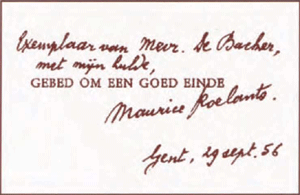 Exemplaar van Mevr. De Backer,
met mijn hulde,
GEBED OM EEN GOED EINDE
Maurice Roelants.
Gent, 29 sept. 56